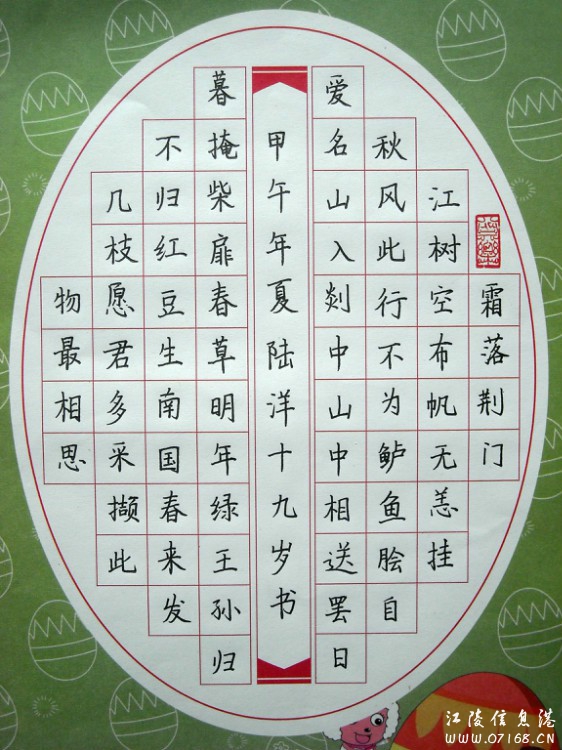 霜落荆门
江树空布帆无恙挂
秋风此行不为鲈鱼脍自
爱名山入剡中山中相送罢日
甲午年夏陆洋十九岁书
暮掩柴扉春草明年绿王孙归
不归红豆生南国春来发
几枝愿君多采撷此
物最相思
江陵信息港
WWW.07168.CN